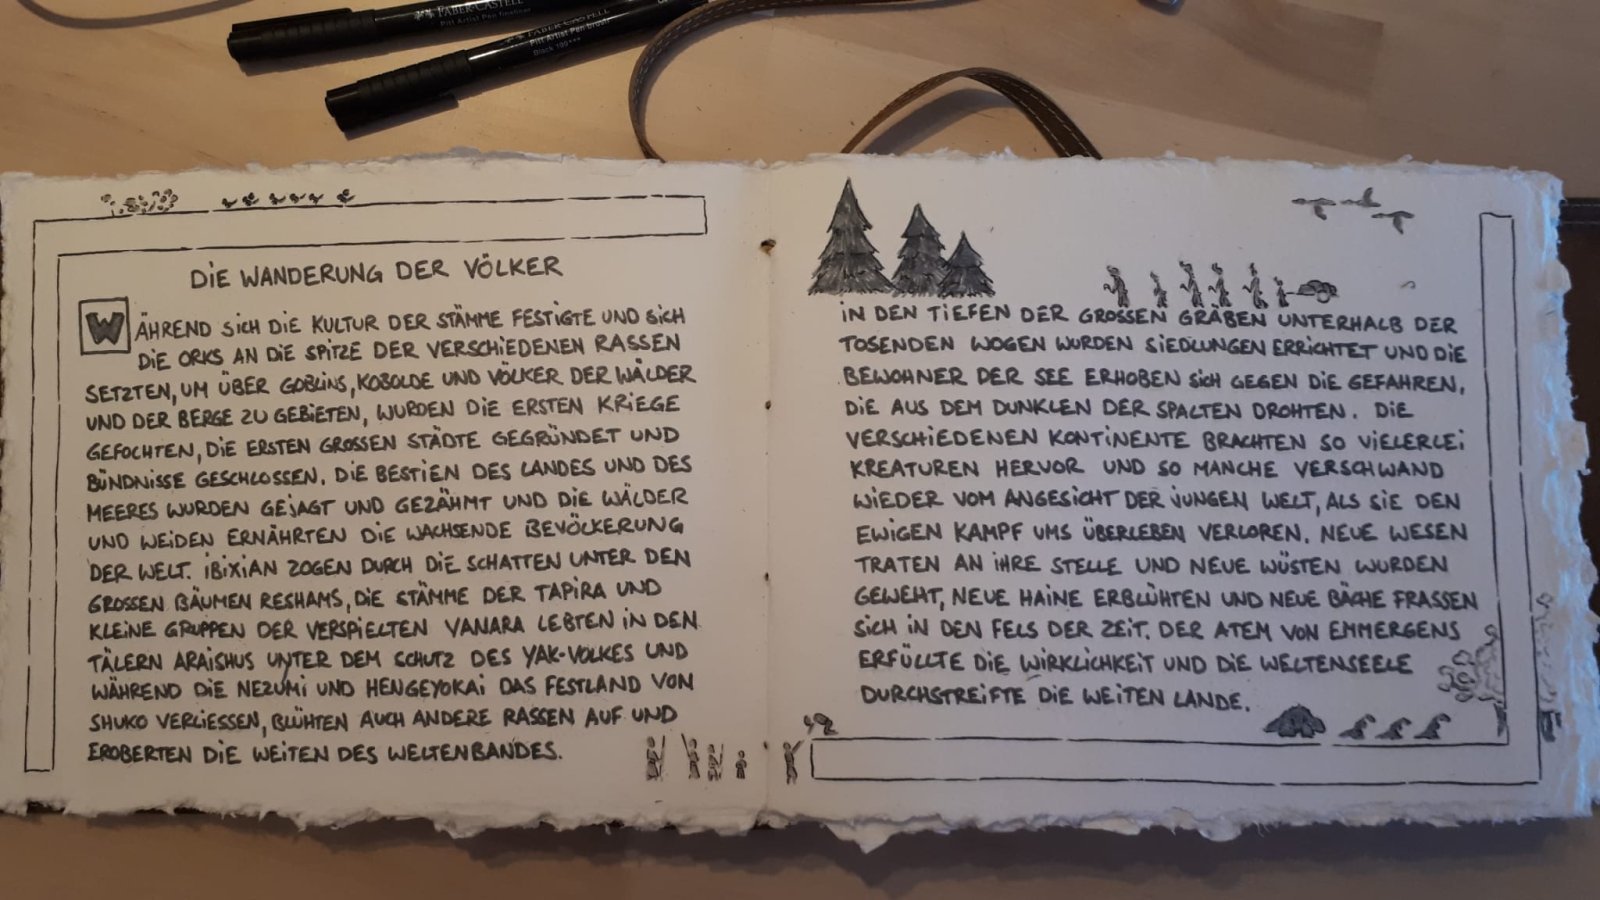 FABER-CASTELL
Pitt Artist Pen fineliner
FABER-CASTELL
Pitt Artist Pen brush
Black 199***
DIE WANDERUNG DER VÖLKER
WÄHREND SICH DIE KULTUR DER STÄMME FESTIGTE UND SICH
DIE ORKS AN DIE SPITZE DER VERSCHIEDENEN RASSEN
SETZTEN, UM ÜBER GOBLINS, KOBOLDE UND VÖLKER DER WÄLDER
UND DER BERGE ZU GEBIETEN, WURDEN DIE ERSTEN KRIEGE
GEFOCHTEN, DIE ERSTEN GROSSEN STÄDTE GEGRÜNDET UND
BÜNDNISSE GESCHLOSSEN. DIE BESTIEN DES LANDES UND DES
MEERES WURDEN GEJAGT UND GEZÄHMT UND DIE WÄLDER
UND WEIDEN ERNÄHRTEN DIE WACHSENDE BEVÖLKERUNG
DER WELT. IBIXIAN ZOGEN DURCH DIE SCHATTEN UNTER DEN
GROSSEN BÄUMEN RESHAMS, DIE STÄMME DER TAPIRA UND
KLEINE GRUPPEN DER VERSPIELTEN VANARA LEBTEN IN DEN
TÄLERN ARAISHUS UNTER DEM SCHUTZ DES YAK-VOLKES UND
WÄHREND DIE NEZUMI UND HENGEYOKAI DAS FESTLAND VON
SHUKO VERLIESSEN, BLÜHTEN AUCH ANDERE RASSEN AUF UND
EROBERTEN DIE WEITEN DES WELTENBANDES.
IN DEN TIEFEN DER GROSSEN GRÄBEN UNTERHALB DER
TOSENDEN WOGEN WURDEN SIEDLUNGEN ERRICHTET UND DIE
BEWOHNER DER SEE ERHOBEN SICH GEGEN DIE GEFAHREN,
DIE AUS DEM DUNKLEN DER SPALTEN DROHTEN. DIE
VERSCHIEDENEN KONTINENTE BRACHTEN SO VIELERLEI
KREATUREN HERVOR UND SO MANCHE VERSCHWAND
WIEDER VOM ANGESICHT DER JUNGEN WELT, ALS SIE DEN
EWIGEN KAMPF UMS ÜBERLEBEN VERLOREN. NEUE WESEN
TRATEN AN IHRE STELLE UND NEUE WÜSTEN WURDEN
GEWEHT, NEUE HAINE ERBLÜHTEN UND NEUE BÄCHE FRASSEN
SICH IN DEN FELS DER ZEIT. DER ATEM VON EMMERGENS
ERFÜLLTE DIE WIRKLICHKEIT UND DIE WELTENSEELE
DURCHSTREIFTE DIE WEITEN LANDE.